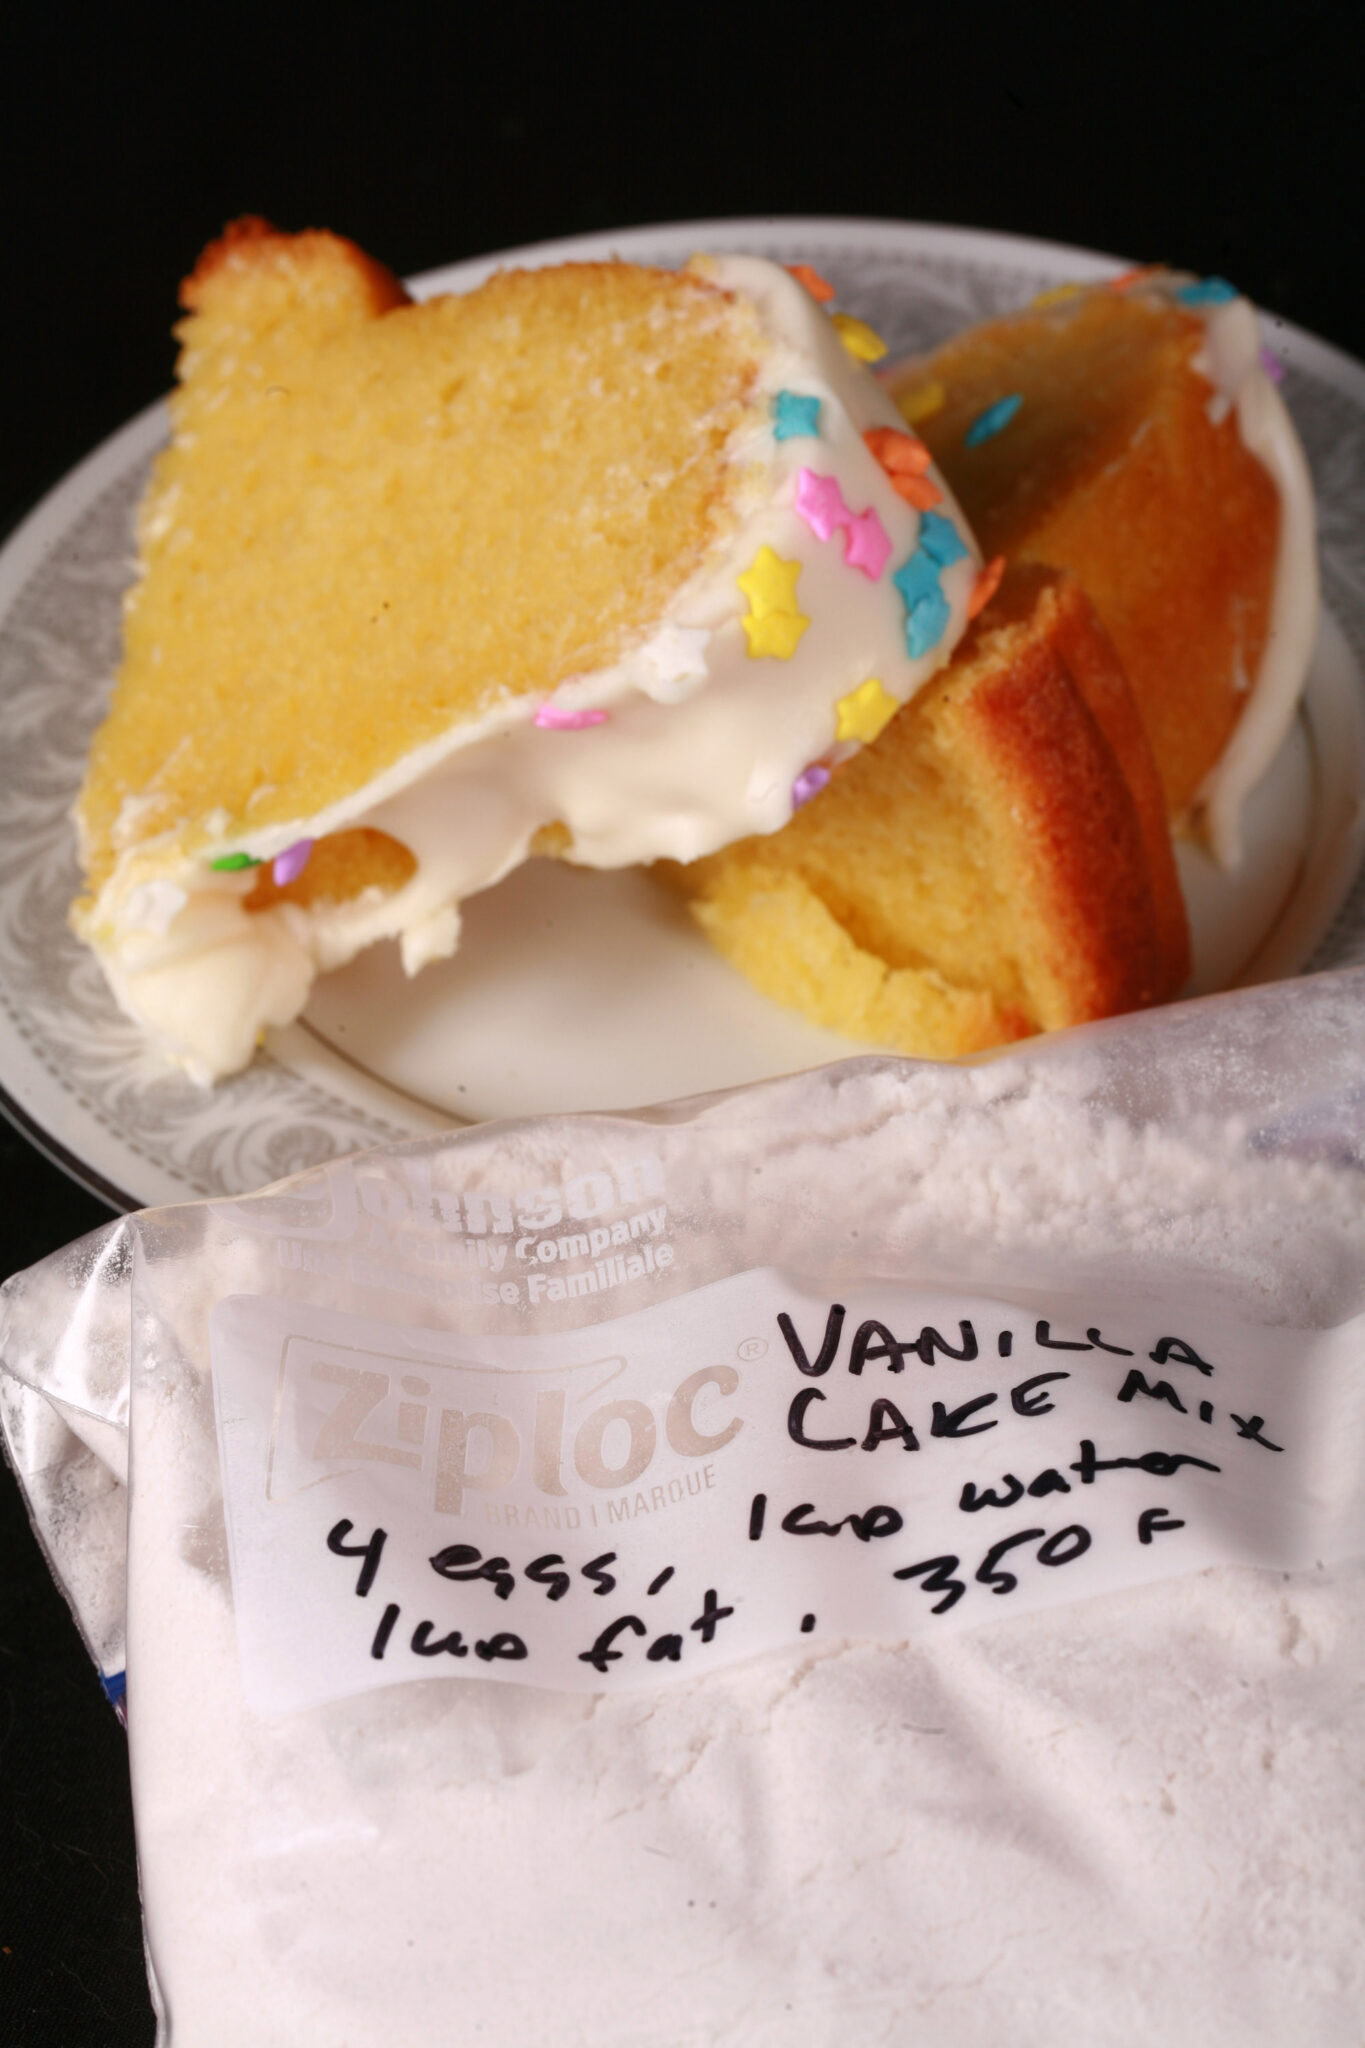 Johnson
Family Company
Une Entreprise Familiale
Ziploc®
BRAND | MARQUE
VANILLA
CAKE MIX
4 eggs, 1 cup water
1 cup fat, 350 F